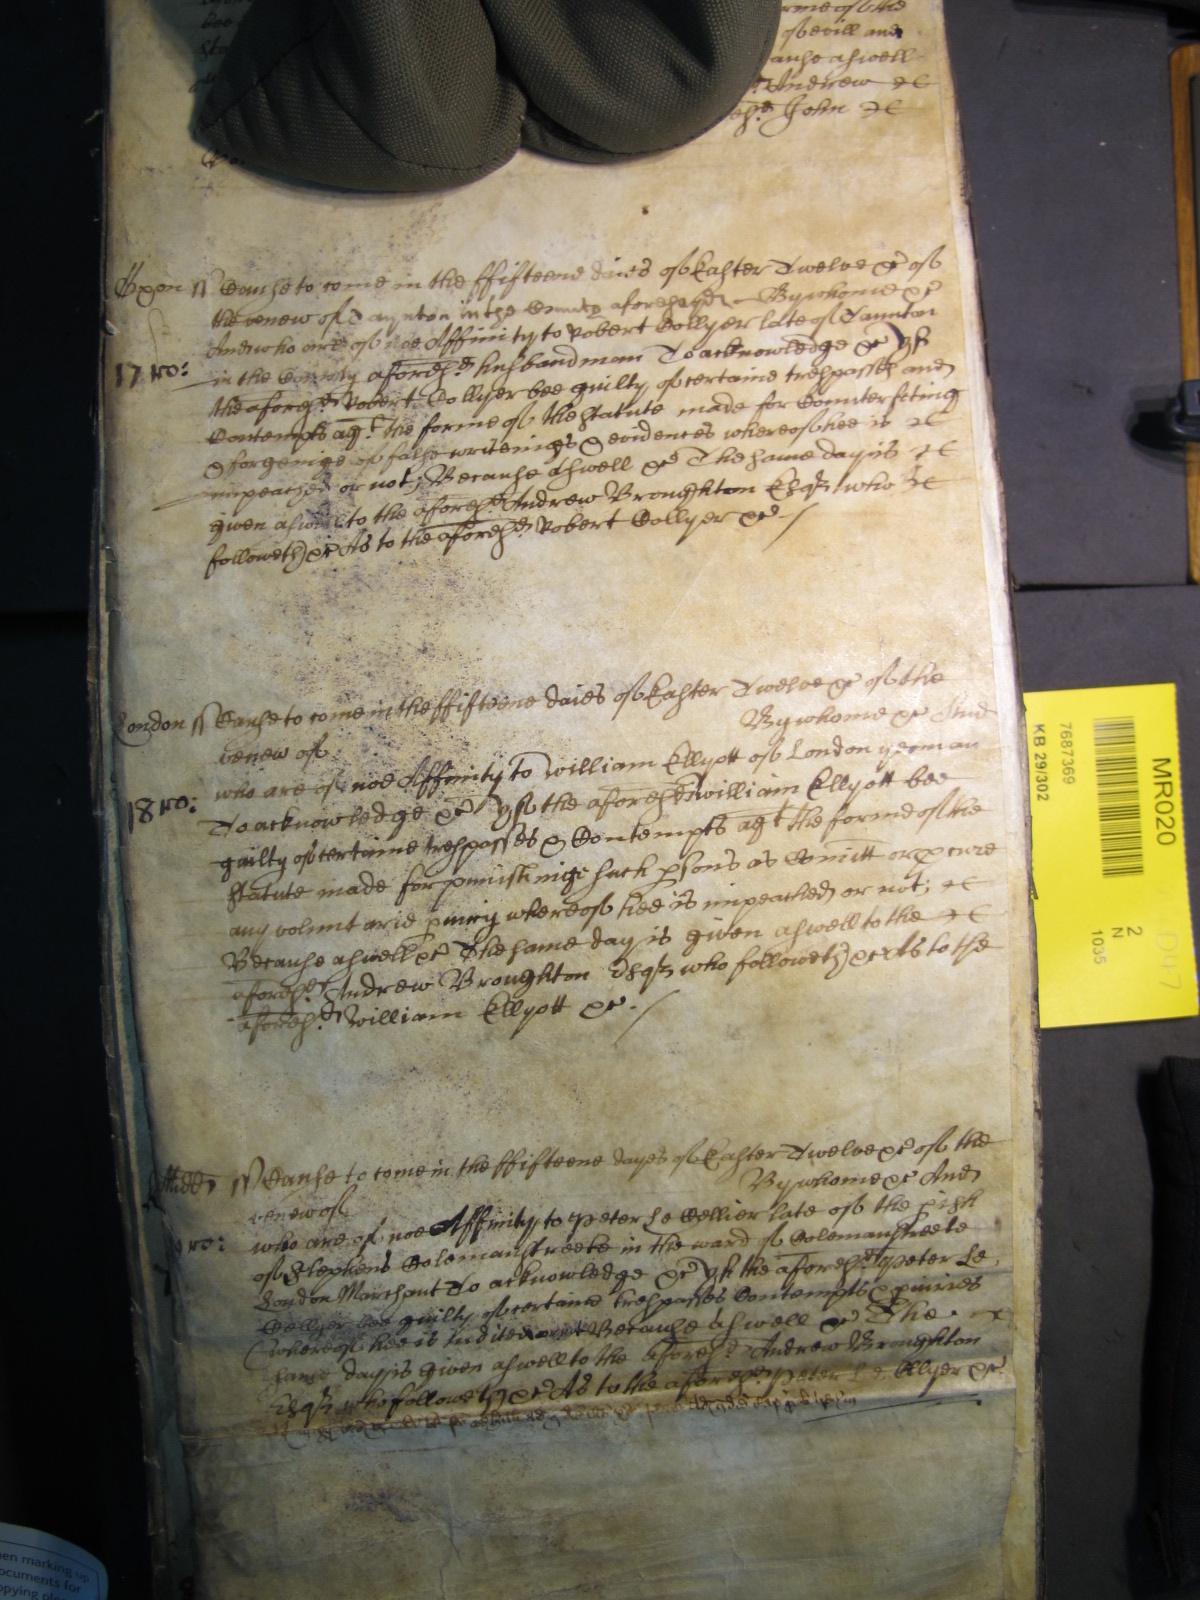 rme of the
of evill and
ause aswell
Andrew &c
John &c
Oxon ss Cause to come in the ffifteene daies of Easter Twelve &c of
the venew of Taynton in the County aforesaid By whome &c
And who are of noe Affinity to Robert Collyer late of Taunton
17 ro:
in the County aforesd husbandman To acknowledge &c yf
the aforesd Robert Collyer bee guilty of certaine trespasses and
Contempts agt the forme of the Statute made for Counterfeting
& forgeinge of false writeings & evidences whereof hee is &c
impeached or not; Because aswell &c The same day is &c
given aswell to the aforesd Andrew Broughton Esqr who &c
followeth &c As to the aforesd Robert Collyer &c
London ss Cause to come in the ffifteene daies of Easter Twelve &c of the
venew of By whome &c And
who are of noe Affinity to William Ellyott of London yeoman
18 ro:
To acknowledge &c yf the aforesd William Ellyott bee
guilty of certaine trespasses & Contempts agt the forme of the
Statute made for punishinge such psons as Comitt or pcure
any voluntarie piury whereof hee is impeached or not; &c
Because aswell &c The same day is given aswell to the &c
aforesd Andrew Broughton Esqr who followeth &c As to the
aforesd William Ellyott &c
Midds ss Cause to come in the ffifteene dayes of Easter Twelve &c of the
venew of By whome &c And
ro:
who are of noe Affinity to Peter Le Cellier late of the pish
of Stephens Colemanstreete in the ward of Colemanstreete
London Marchant To acknowledge &c yf the aforesd Peter Le
Cellyer bee guilty of certaine trespasses Contempts & piuries
whereof hee is Indited or not Because aswell &c The
same day is given aswell to the aforesd Andrew Broughton
Esqr who followeth &c As to the aforesd Peter Le Cellyer &c
MR020
7687369
KB 29/302
2
N
1035
en marking up
ocuments for
opying